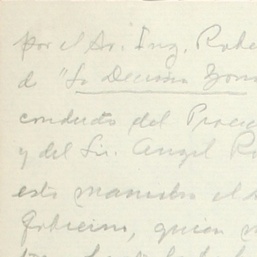 por el Sr. Ing. Robe
de "La Decima Zona
conducto del Procu
y del Sr. Angel Ro
esta manera el
Gobierno, quien